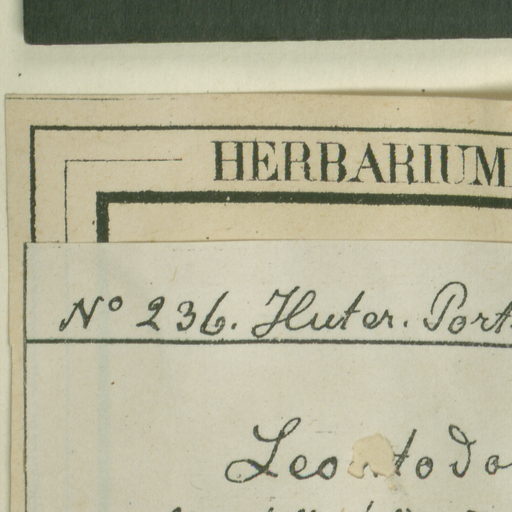 HERBARIUM
Nº 236. Huter. Port
Leontodo